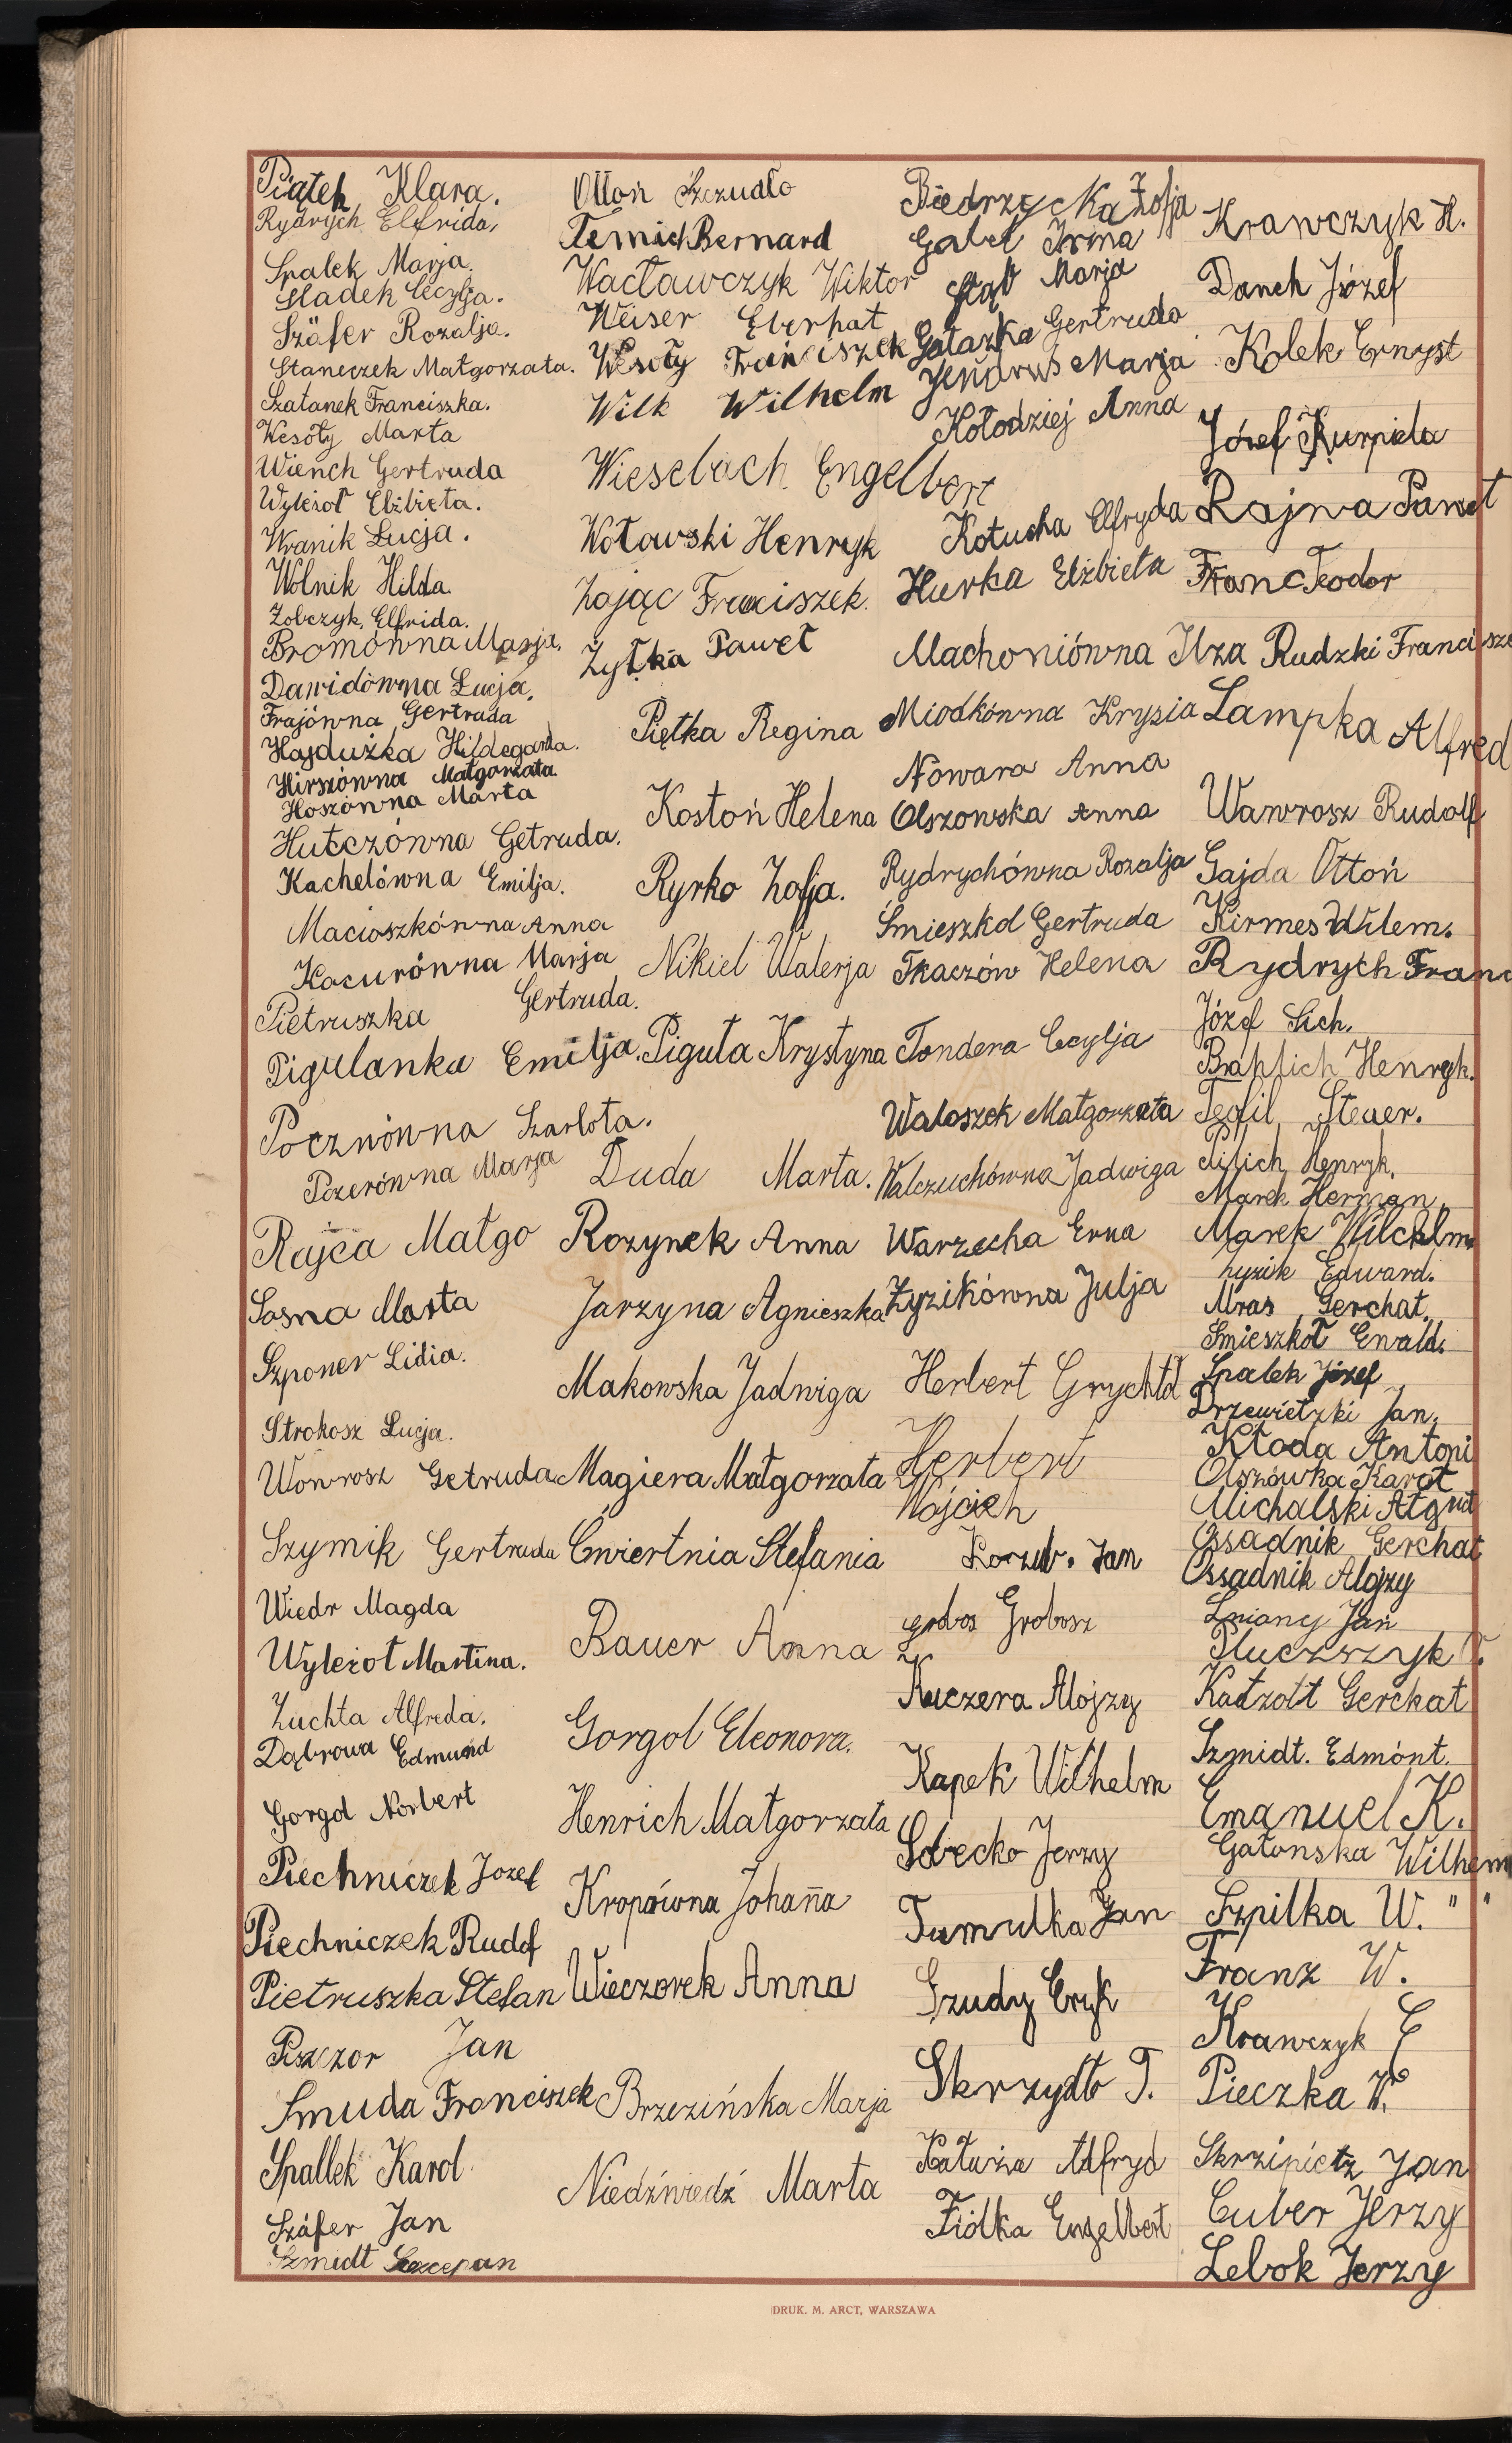 Piątek Klara.
Rydrych Elfrida,
Spalek Marja.
Sladek Cecylja.
Szäfer Rozalja.
Staneczek Małgorzata.
Szatanek Franciszka.
Wesoły Marta
Wiench Gertruda
Wyleżoł Elżbieta.
Wranik Łucja.
Wolnik Hilda.
Zobczyk, Elfrida.
Bromówna Marja,
Dawidówna Łucja,
Frajówna Gertruda
Hajdużka Hildegarda.
Hirszówna Małgorzata.
Hoszówna Marta
Hutczówna Getruda.
Kachelówna Emilja.
Macioszkówna Anna
Kocurówna Marja
Pietruszka Gertruda.
Pigulanka Emilja.
Pocznówna Szarlota.
Pizerówna Marja
Rajca Małgo
Sosna Marta
Szponer Lidia.
Strokosz Łucja.
Wowrosz Getruda
Szymik Gertruda
Wiedr Magda
Wyleżoł Martina.
Zuchta Alfreda.
Dąbrowa Edmund
Gorgol Norbert
Piechniczek Jozef
Piechniczek Rudolf
Pietruszka Stefan
Piszczor Jan
Smuda Franciszek
Spallek Karol
Száfer Jan
Szmidt Szczepan
Otton Szczudło
Temich Bernard
Wacławczyk Wiktor
Weiser Eberhat
Wesoły Franciszek
Wilk Wilhelm
Wieselbach Engelbert
Wotawski Henryk
Zając Franciszek.
Żyłka Paweł
Piętka Regina
Kostoń Helena
Ryrko Zofja.
Nikiel Walerja
Piguła Krystyna
Duda Marta.
Rozynek Anna
Jarzyna Agnieszka
Makowska Jadwiga
Magiera Małgorzata
Ćwiertnia Stefania
Bauer Anna
Gorgol Eleonora.
Henrich Małgorzata
Kropówna Johanna
Wieczorek Anna
Brzezińska Marja
Niedźwiedź Marta
Biedrzycka Zofja
Gabel Irma
Głąb Marja
Gałazka Gertruda
Jendruś Marja
Kołodziej Anna
Kotucha Elfryda
Hurka Elżbieta
Machoniówna Ilza
Miodkówna Kryzia
Nowara Anna
Olszowska Anna
Rydrychówna Rozalja
Śmieszkol Gertruda
Tkaczów Helena
Tondera Cecylja
Waloszek Małgorzata
Walczuchówna Jadwiga
Warzecha Erna
Żyzikówna Julja
Herbert Grychtoł
Herbert
Wojciech
Korzub. Jan
Grobosz
Kuczera Alojzy
Kapek Wilhelm
Sobecko Jerzy
Tumulka Jan
Szudy Eryk
Skrzydło T.
Kałuża Alfryd
Fiólka Engelbert
Krawczyk H.
Danch Józef
Kolek Ernyst
Józef Kurpiela
Rajwa Paweł
Franc Teodor
Rudzki Francisze
Lampka Alfred
Wawrosz Rudolf
Gajda Ottoń
Kirmes Wilem.
Rydrych Franc
Józef Sich.
Henryk.
Teofil Steuer.
Pilich Henryk.
Marek Herman
Marek Wilchlm.
Łyzik Edward.
Mras Gerchat.
Smieszkoł Ewald.
Spalek Józef
Drzewietzki Jan.
Kłoda Antoni
Olszówka Karol
Michalski
Ossadnik Gerchat
Ossadnik Alojzy
Lniany Jan
Tluczszyk T.
Kaczott Gerchat
Szmidt. Edmónt.
Emanuel K.
Gałonska Wilhem
Szpilka W. " "
Franz W.
Krawczyk E
Pieczka W.
Skrzipietz Jan
Cuber Jerzy
Lebok Jerzy
DRUK. M. ARCT, WARSZAWA